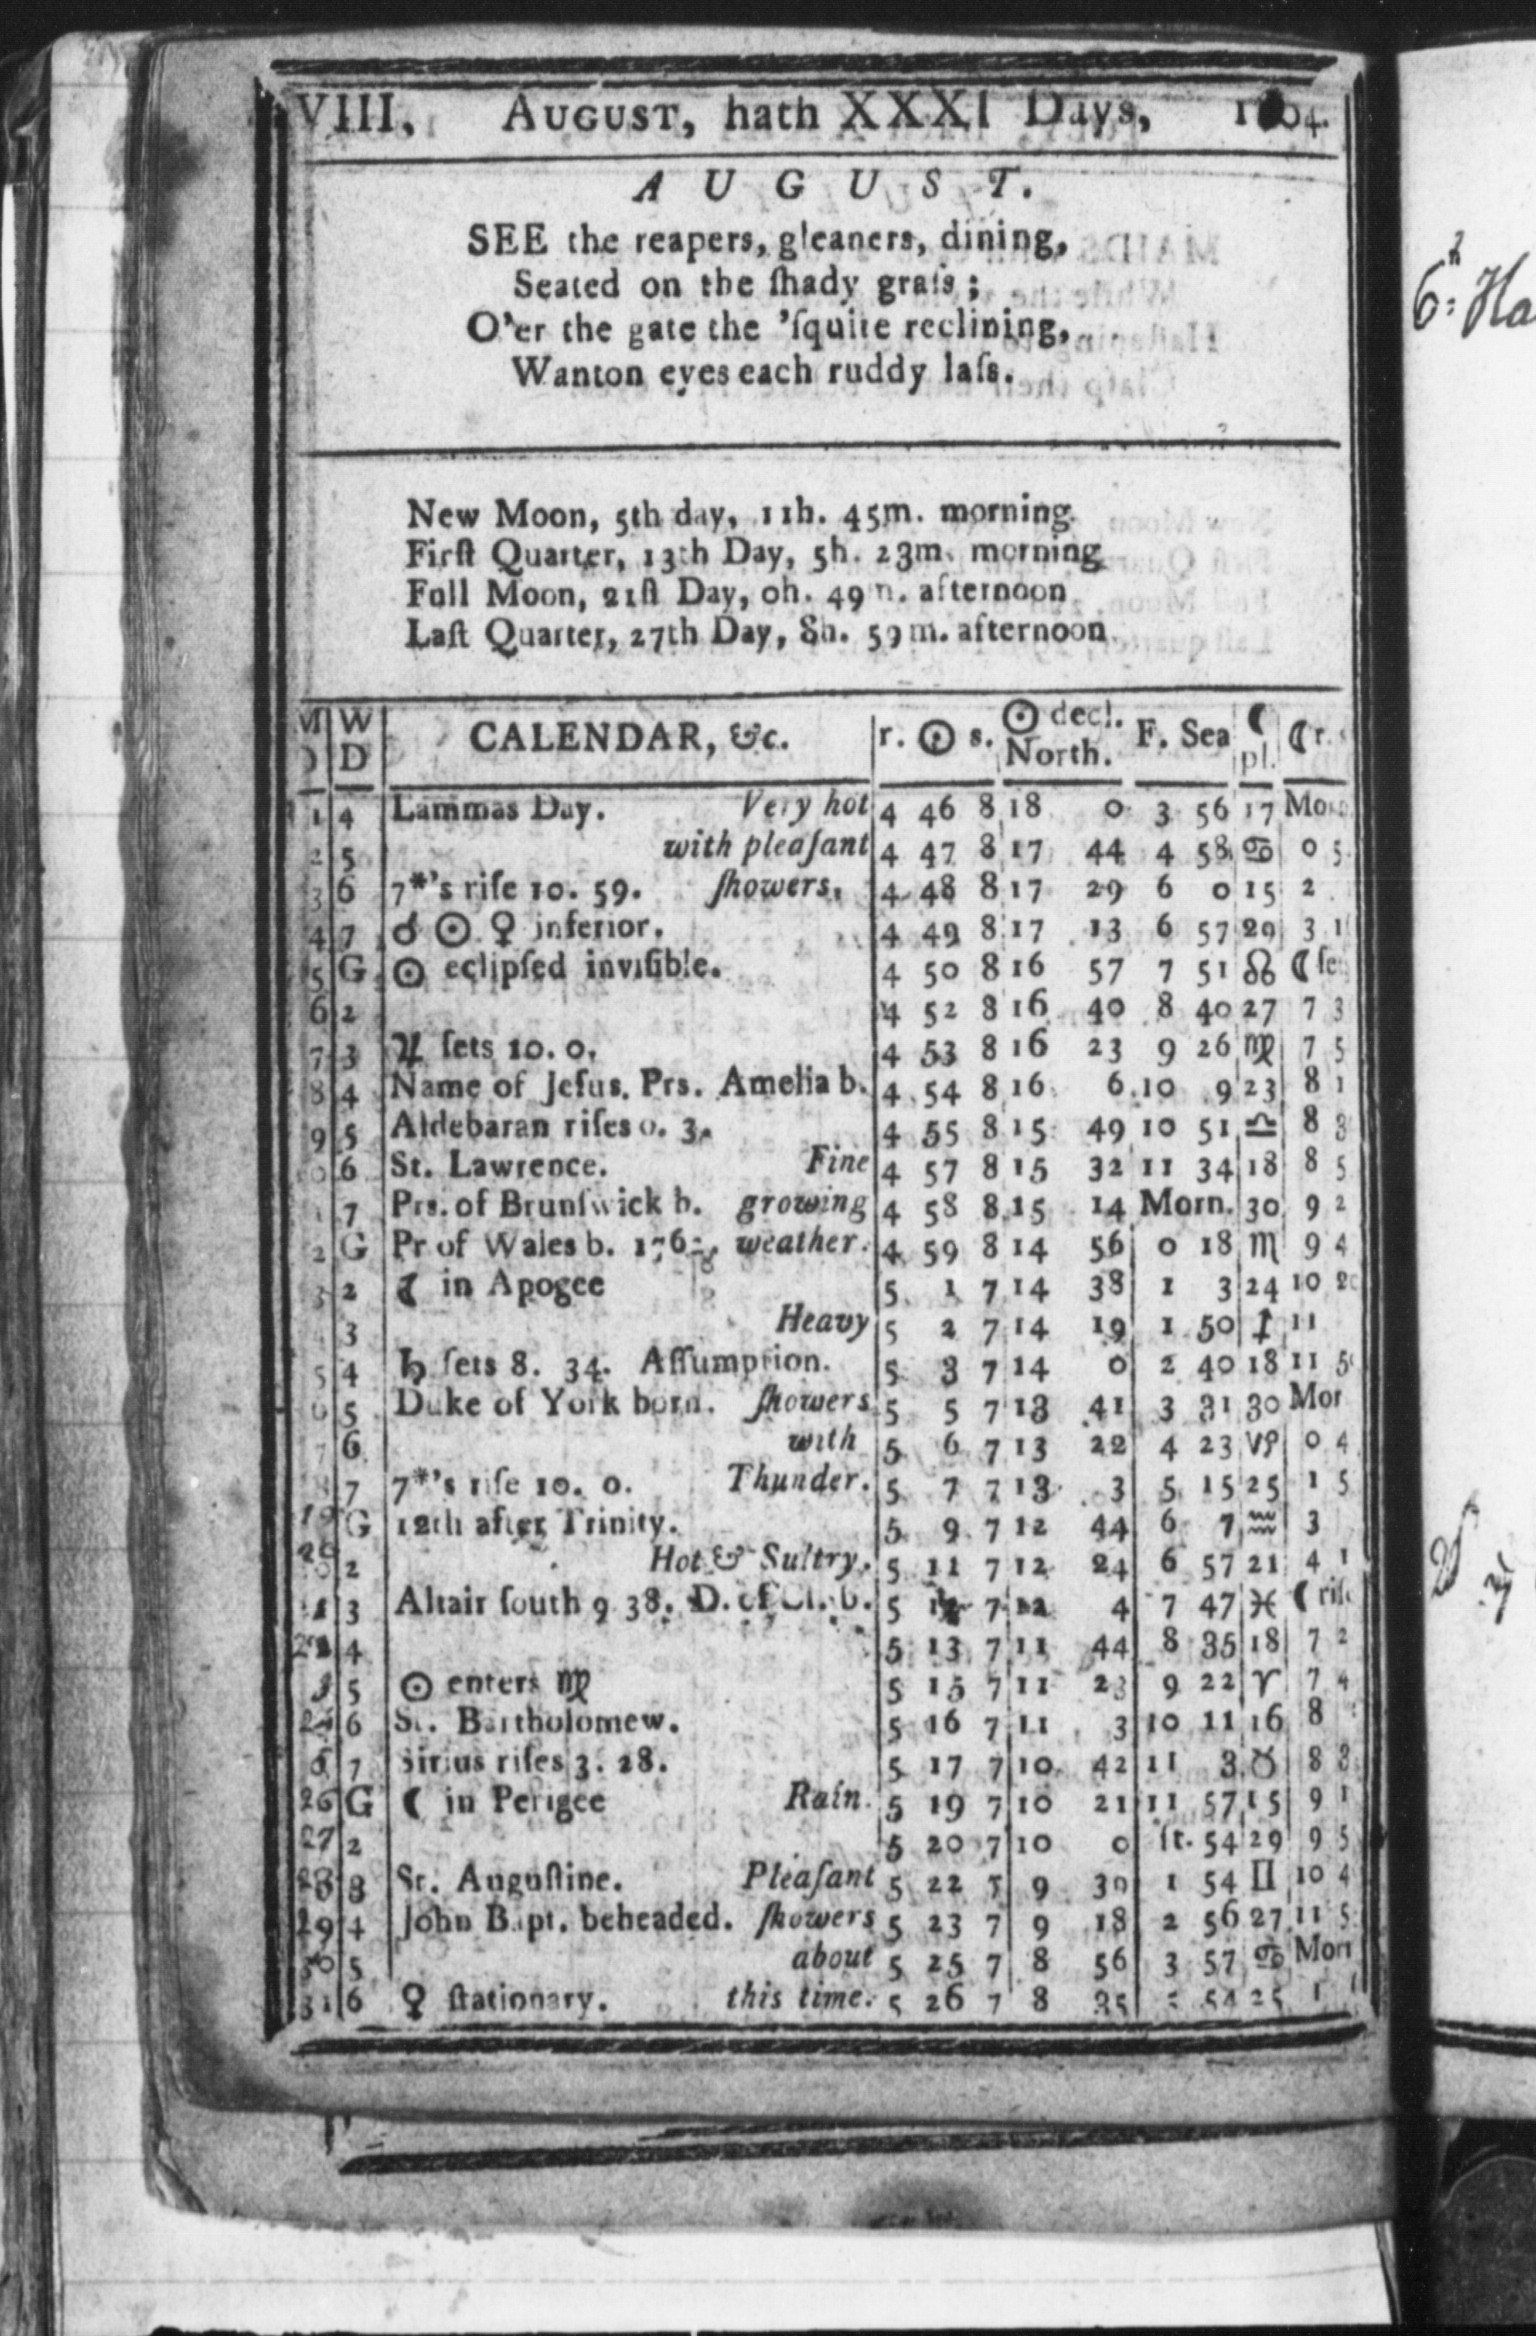 VIII, AUGUST, hath XXXI Days,
AUGUST.
SEE the reapers, gleaners, dining,
Seated on the ſhady graſs ;
O'er the gate the 'ſquire reclining,
Wanton eyes each ruddy laſs.
New Moon, 5th day, 11h. 45m. morning
Firſt Quarter, 13th Day, 5h. 23m. morning
Full Moon, 21ſt Day, 0h. 49m. afternoon
Laſt Quarter, 27th Day, 8h. 59m. afternoon
W D CALENDAR, &c. r. ☉ s. ☉ decl. North. F. Sea ☾ pl. ☾ r.
1 4 Lammas Day. Very hot 4 46 8 18 0 3 56 17 Morn
2 5 with pleaſant 4 47 8 17 44 4 58 ♋ 0 5
3 6 7*'s riſe 10. 59. ſhowers, 4 48 8 17 29 6 0 15 2
4 7 ☌ ☉ ♀ inferior. 4 49 8 17 13 6 57 29 3 1
5 G ☉ eclipſed inviſible. 4 50 8 16 57 7 51 ♌ ☾ ſe
6 2 4 52 8 16 40 8 40 27 7 3
7 3 ♃ ſets 10. 0. 4 53 8 16 23 9 26 ♍ 7 5
8 4 Name of Jeſus. Prs. Amelia b. 4 54 8 16 6 10 9 23 8 1
9 5 Aldebaran riſes 0. 3. 4 55 8 15 49 10 51 ♎ 8 3
0 6 St. Lawrence. Fine 4 57 8 15 32 11 34 18 8 5
1 7 Prs. of Brunſwick b. growing 4 58 8 15 14 Morn. 30 9 2
2 G Pr of Wales b. weather. 4 59 8 14 56 0 18 ♏ 9 4
3 2 ☾ in Apogee 5 1 7 14 38 1 3 24 10 20
3 Heavy 5 2 7 14 19 1 50 ♐ 11
5 4 ♄ ſets 8. 34. Aſſumption. 5 3 7 14 0 2 40 18 11 5
6 5 Duke of York born. ſhowers 5 5 7 13 41 3 31 30 Mor
7 6 with 5 6 7 13 22 4 23 ♑ 0 4
7 7*'s riſe 10. 0. Thunder. 5 7 7 13 3 5 15 25 1 5
19 G 12th after Trinity. 5 9 7 12 44 6 7 ♒ 3
20 2 Hot & Sultry. 5 11 7 12 24 6 57 21 4 1
21 3 Altair ſouth 9 38. D. of Cl. b. 5 12 7 12 4 7 47 ♓ ☾ riſe
22 4 5 13 7 11 44 8 35 18 7 2
3 5 ☉ enters ♍ 5 15 7 11 23 9 22 ♈ 7 4
24 6 St. Bartholomew. 5 16 7 11 3 10 11 16 8
5 7 Sirius riſes 3. 28. 5 17 7 10 42 11 3 ♉ 8 3
26 G ☾ in Perigee Rain. 5 19 7 10 21 11 57 15 9 1
27 2 5 20 7 10 0 ft. 54 29 9 5
28 3 St. Auguſtine. Pleaſant 5 22 7 9 39 1 54 ♊ 10 4
29 4 John Bapt. beheaded. ſhowers 5 23 7 9 18 2 56 27 11 5
30 5 about 5 25 7 8 56 3 57 ♋ Morn
31 6 ♀ ſtationary. this time. 5 26 7 8 35 54 25 1